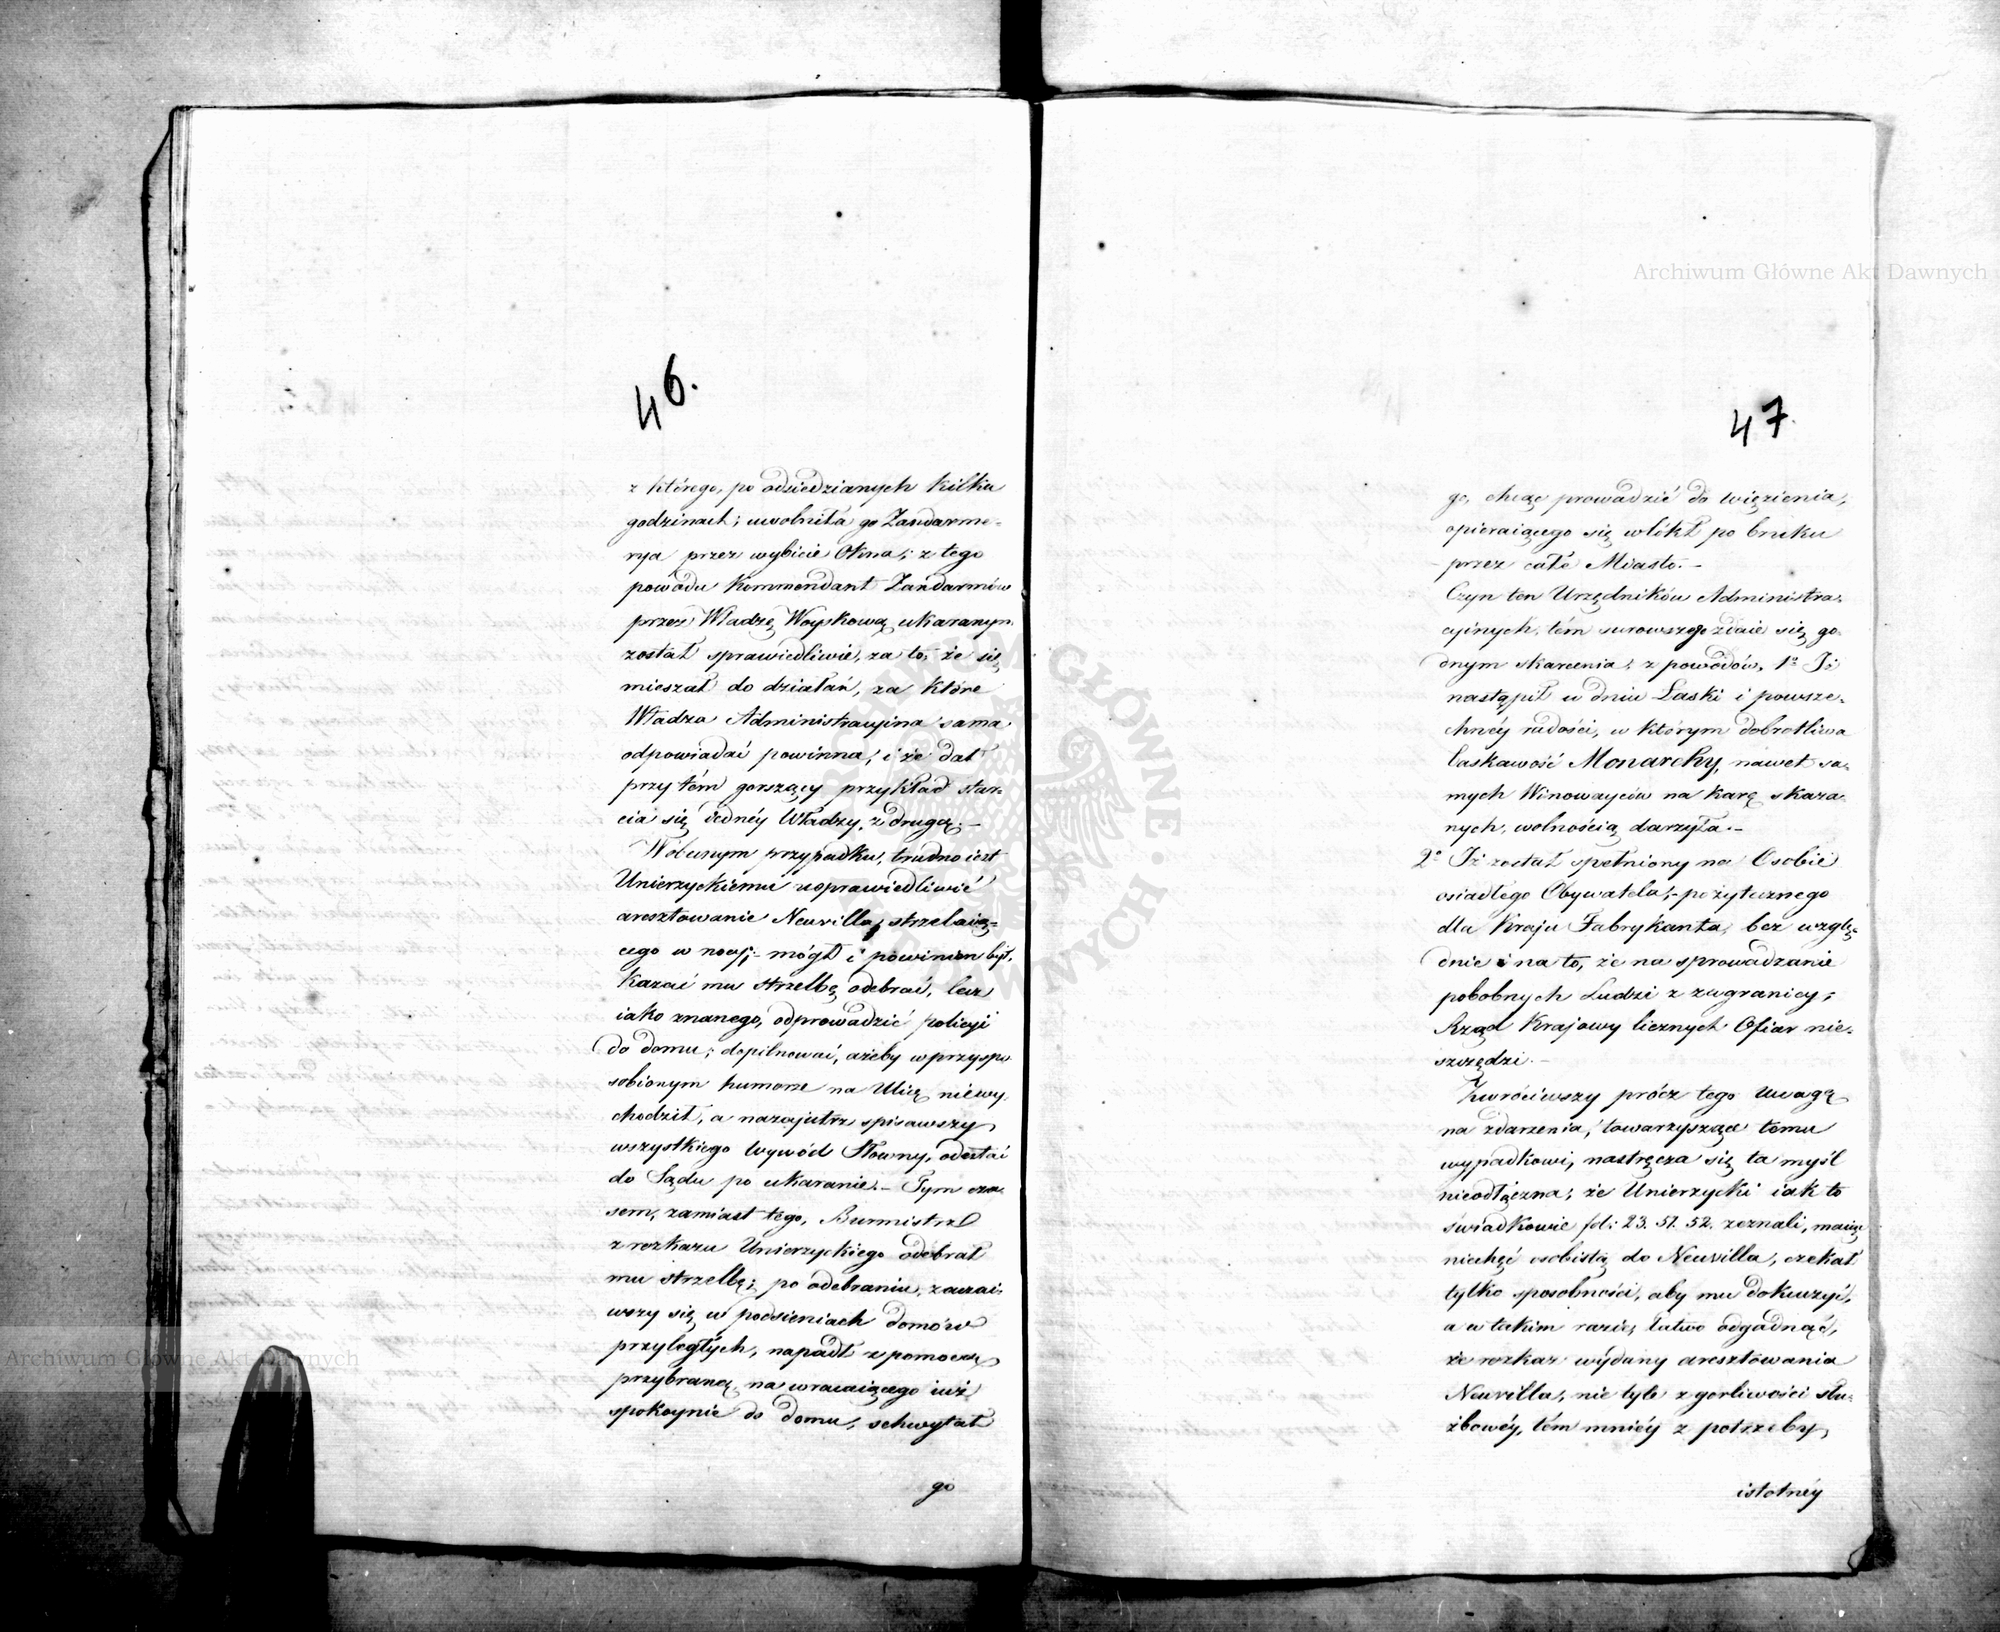 46.
z którego, po odsiedzianych kilku
godzinach; uwolniła go Żandarme-
rya przez wybicie Okna; z tego
powodu Kommendant Żandarmów
przez Władzę Woyskową ukaranym
został sprawiedliwie, za to, że się
mieszał do działań, za które
Władza Administracyina sama
odpowiadać powinna, i że dał
przy tém gorszący przykład star-
cia się iednéy Władzy, z drugą.-
W obecnym przypadku, trudno iest
Unierzyckiemu usprawiedliwić
aresztowanie Neuvilla, strzelaią-
cego w nocy;- mógł i powinien był,
kazać mu strzelbę odebrać, lecz
iako znanego, odprowadzić policyi
do domu; dopilnować, ażeby w przyspo-
sobionym humorze na Ulicę niewy-
chodził, a nazajutrz spisawszy
wszystkiego wywód Słowny, odesłać
do Sądu po ukaranie.- Tym cza-
sem, zamiast tego, Burmistrz
z rozkazu Unierzyckiego odebrał
mu strzelbę; po odebraniu, zaczai-
wszy się w podsieniach domów
przyległych, napadł z pomocą
przybraną, na wracaiącego iuż
spokoynie do domu, schwytał
go
47.
go, chcąc prowadzić do więzienia,
opieraiącego się wlókł po bruku
przez całe Miasto.-
Czyn ten Urzędników Administra-
cyinych, tém surowszego zdaie się go-
dnym skarcenia, z powodów, 1º Iż
nastąpił w dniu Łaski i powsze-
chnéy radości, w którym dobrotliwa
łaskawość Monarchy, nawet sa-
mych Winowayców na karę skaza-
nych, wolnością darzyła.-
2º Iż został spełniony na Osobie
osiadłego Obywatela,- pożytecznego
dla Kraju Fabrykanta, bez wzglę-
dnie i na to, że na sprowadzanie
pobobnych Ludzi z zagranicy,
Rząd Krajowy licznych Ofiar nie-
szczędzi.-
Zwróciwszy prócz tego uwagę
na zdarzenia, towarzyszące temu
wypadkowi, nastręcza się ta myśl
nieodłączna, że Unierzycki iak to
świadkowie fol: 23. 51. 52. zeznali, maiąc
niechęć osobistą do Neuvilla, czekał
tylko sposobności, aby mu dokuczyć,
a w takim razie, łatwo odgadnąć,
że rozkaz wydany aresztowania
Neuvilla, nie tyle z gorliwości słu-
żbowéy, tém mniéy z potrzeby
istotnéy
Archiwum Główne Akt Dawnych
Archiwum Główne Akt Dawnych